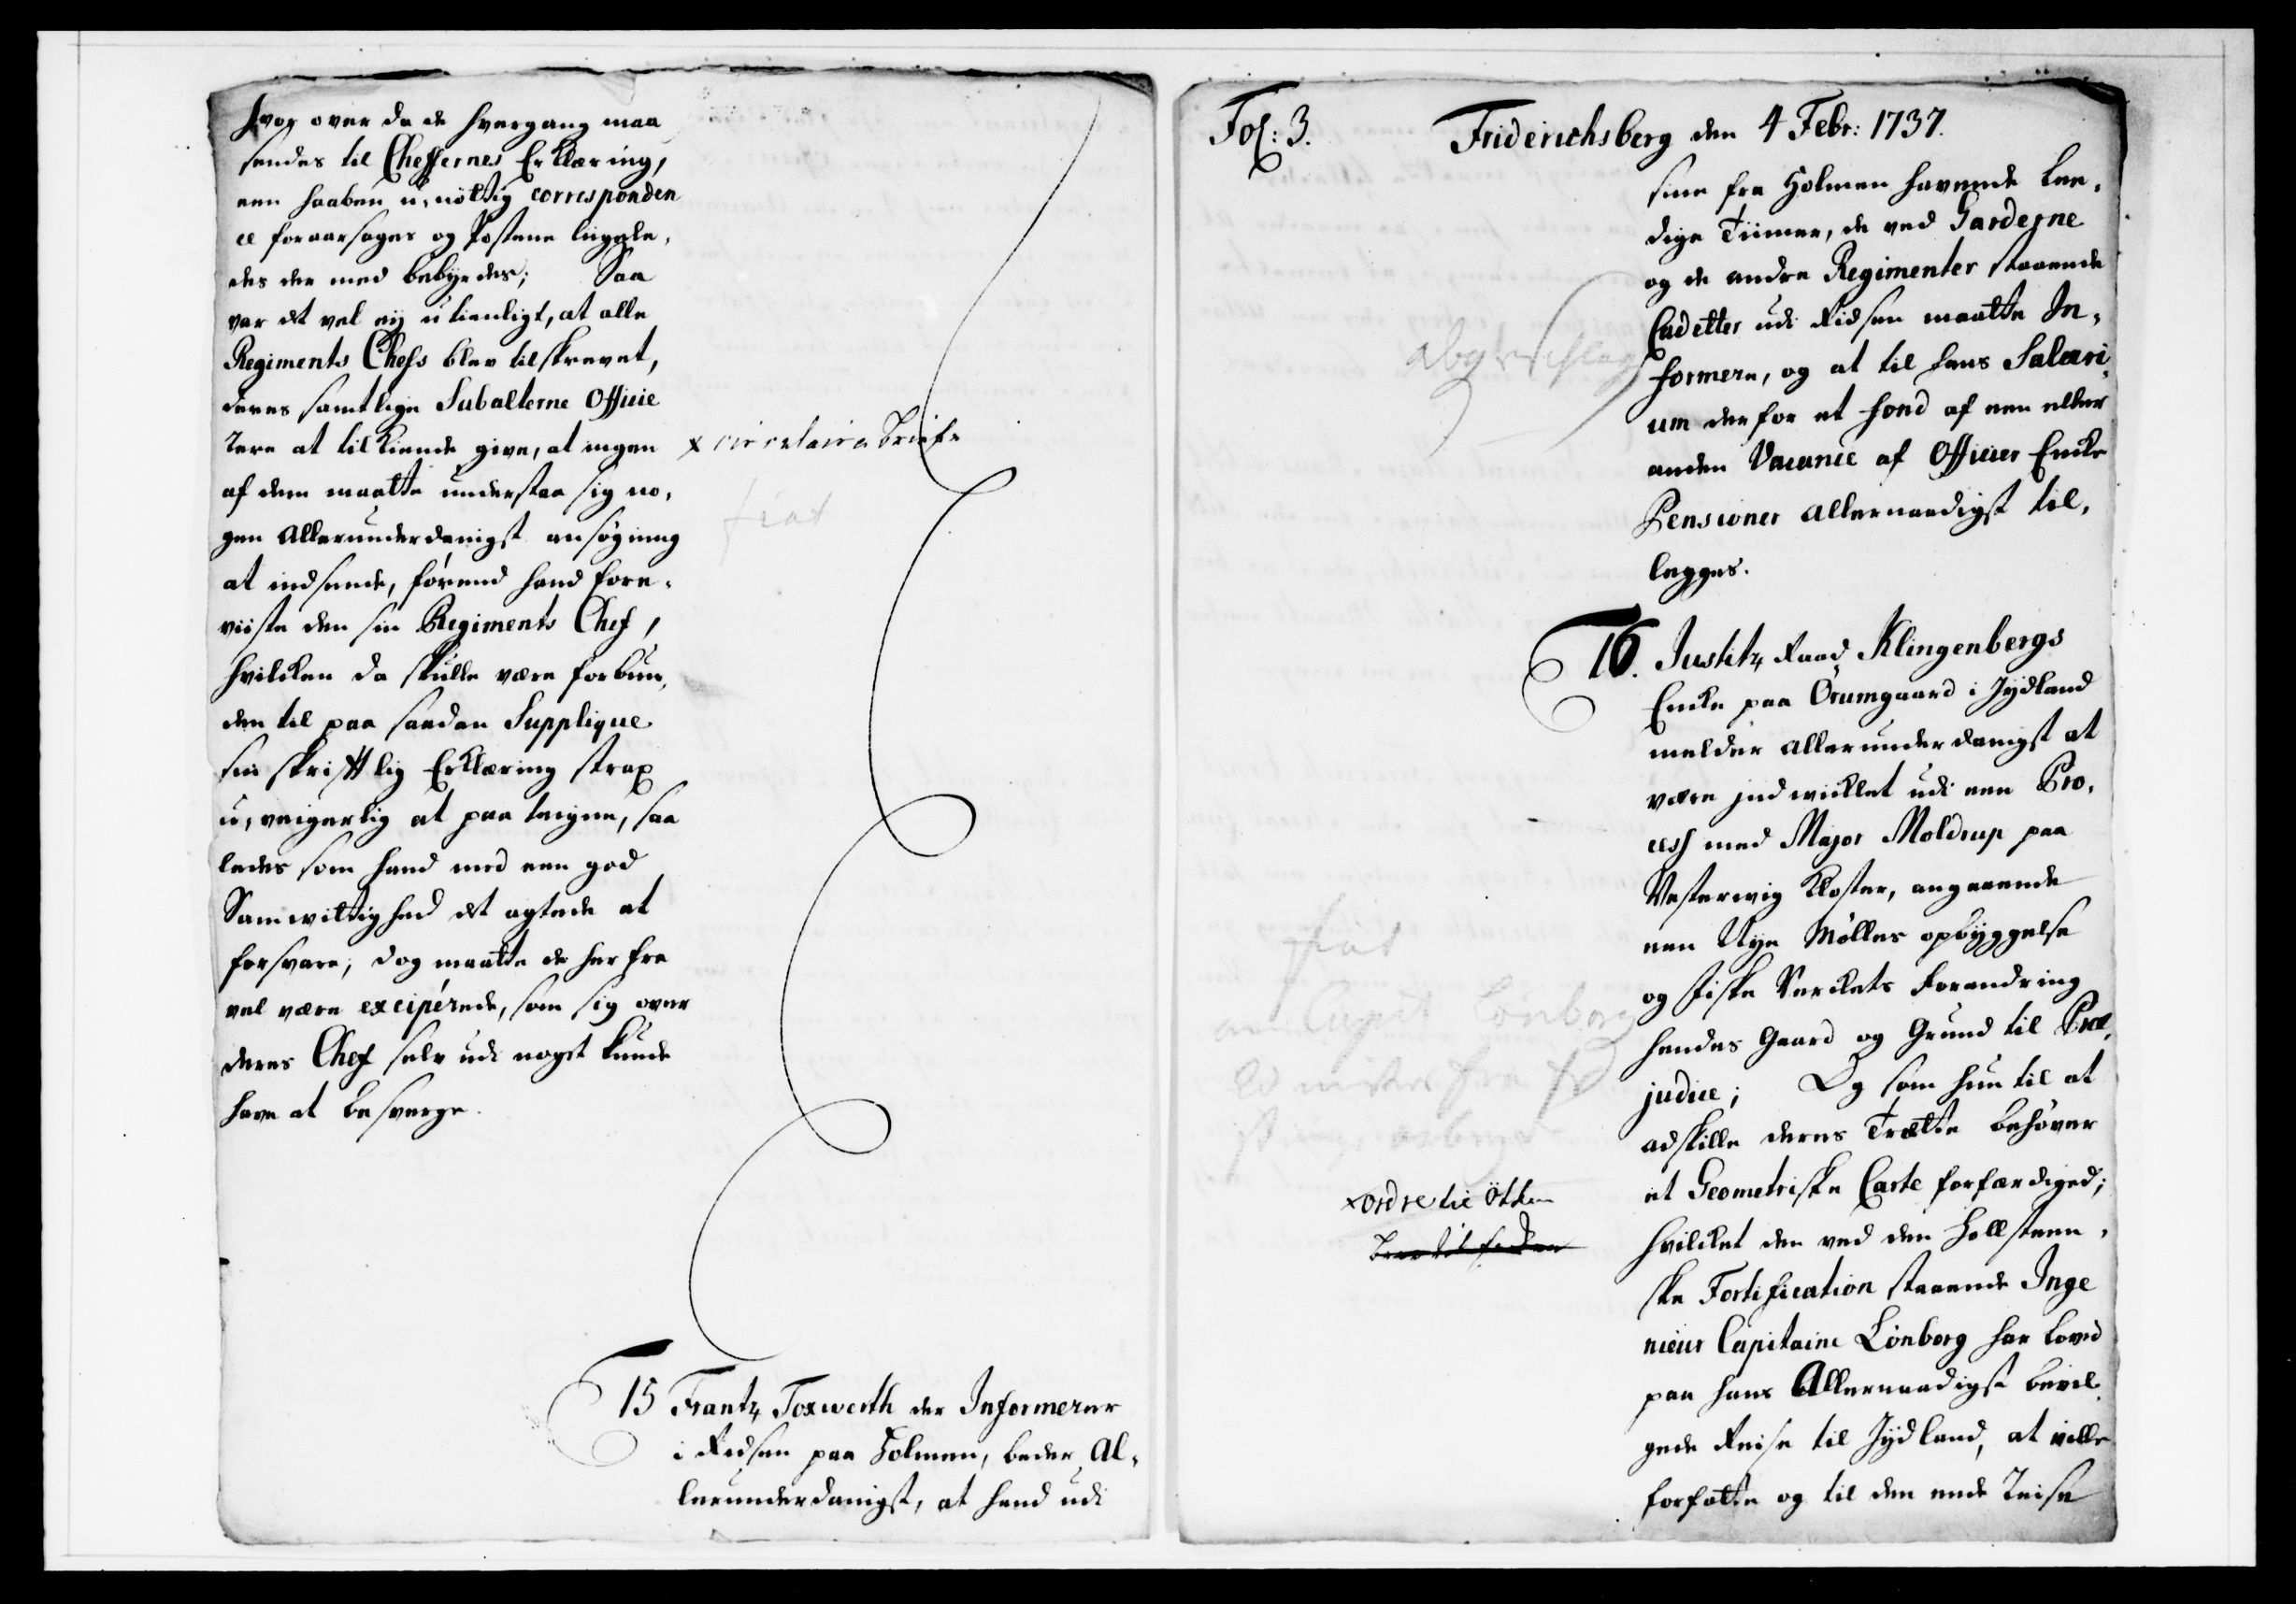 hvor over da de hvergang maa
sendes til Cheffernes Erklæring,
een haaben u-nöttig corresponden
ce foraarsages og Posterne ligele-
des der med bebyrdes; Saa
var det vel ey utienligt, at alle
Regiments Chefs blev tilskrevet,
deres samtlige Subalterne Officie
rere at tilkiende give, at ingen
af dem maatte understaa sig no-
gen Allerunderdanigst ansøgning
at indsende, førend hand fore-
viiste den sin Regiments Chef,
hvilcken da skulle være forbun-
den til paa saadan Supplique
sin skrifftlig Erklæring strax
u-veigerlig at paa teigne, saa
ledes som hand med een god
Samwittighed det agtede at
forsvare; dog maatte de her fra
vel være exciperede, som sig over
deres Chef selv udi noget kunde
have at besverge.
x circulaire Briefe
fiat
15 Frantz Toxwerth der Informerer
i Ridsen paa Holmen, beder Al-
lerunderdanigst, at hand udi
Fol: 3. Friderichsberg den 4 Febr: 1737.
sine fra Holmen havende Lee-
dige Tiimer, de ved Garderne
og de andre Regimenter staaende
Cadetter udi Ridsen maatte In-
formere, og at til hans Salari-
um derfor et fond af een eller
anden Vacance af Officier Encke
Pensioner allernaadigst til-
legges.
abgeschlag
16. Justitz Raad Klingenbergs
Encke paa Örumgaard i Jydland
melder allerunderdanigst at
være indwicklet udi een Pro-
cess med Major Moldrup paa
Westerwig Kloster, angaaende
een Nye Mølles opbyggelse
og fiske Werckets forandring
hendes Gaard og Grund til Præ-
judice; Og som hun til at
adskille deres Trætte behøver
et Geometriske Carte forfærdiged;
hvilcket den ved den Hollsteen-
ske Fortification staaende Inge
nieur Capitaine Lönborg har loved
paa hans Allernaadigst bevil-
gede Reise til Jydland, at ville
forfatte og til den ende Reise
fiat
Capit Lönborg
x Ordre til Ötken